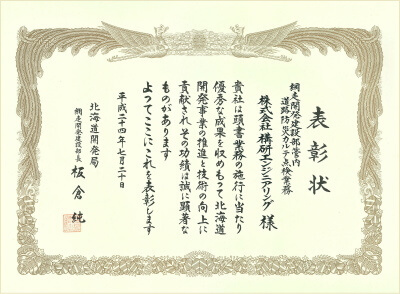 表彰状
網走開発建設部管内
道路防災カルテ点検業務
株式会社構研エンジニアリング 様
貴社は頭書業務の施行に当たり
優秀な成果を収めもって北海道
開発事業の推進と技術の向上に
貢献され その功績は誠に顕著な
ものがあります
よってここにこれを表彰します
平成二十四年七月二十日
北海道開発局
網走開発建設部長 板倉 純